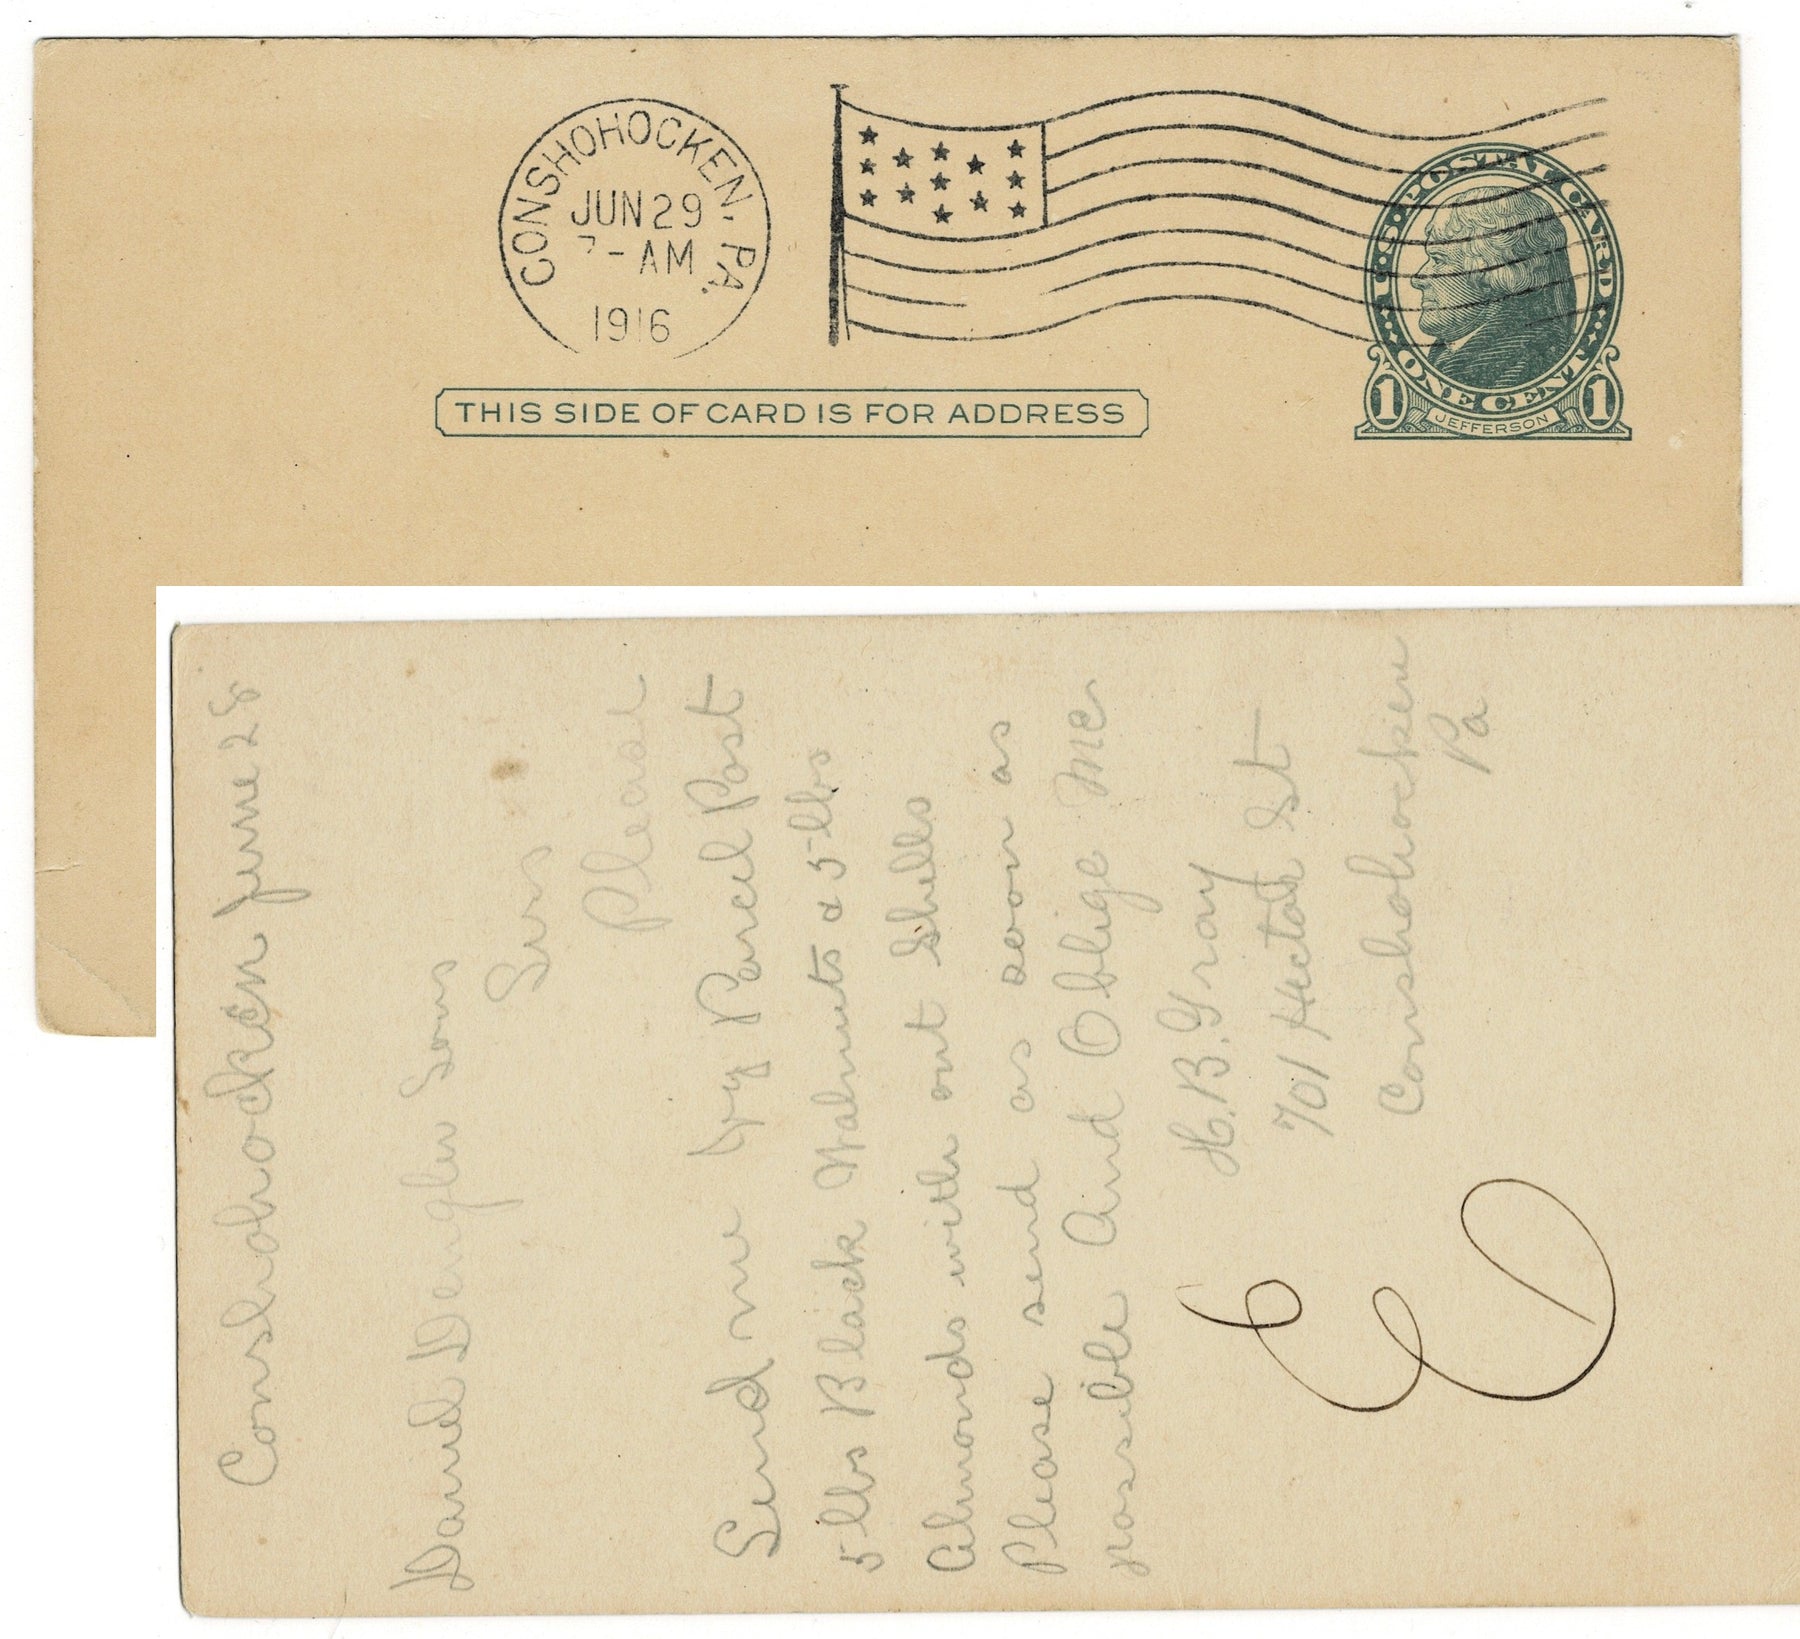 CONSHOHOCKEN, PA.
JUN 29
7 - AM
1916
U·S·POSTAL CARD
ONE CENT
1 1
JEFFERSON
THIS SIDE OF CARD IS FOR ADDRESS
Conshohocken June 28
Daniel Dengler Sons
Sirs
Please
Send me by Parcel Post
5 lbs Black Walnuts & 5 lbs
Almonds with out Shells
Please send as soon as
possible And Oblige Me
H. B. Gray
701 Hector St
Conshohocken
Pa